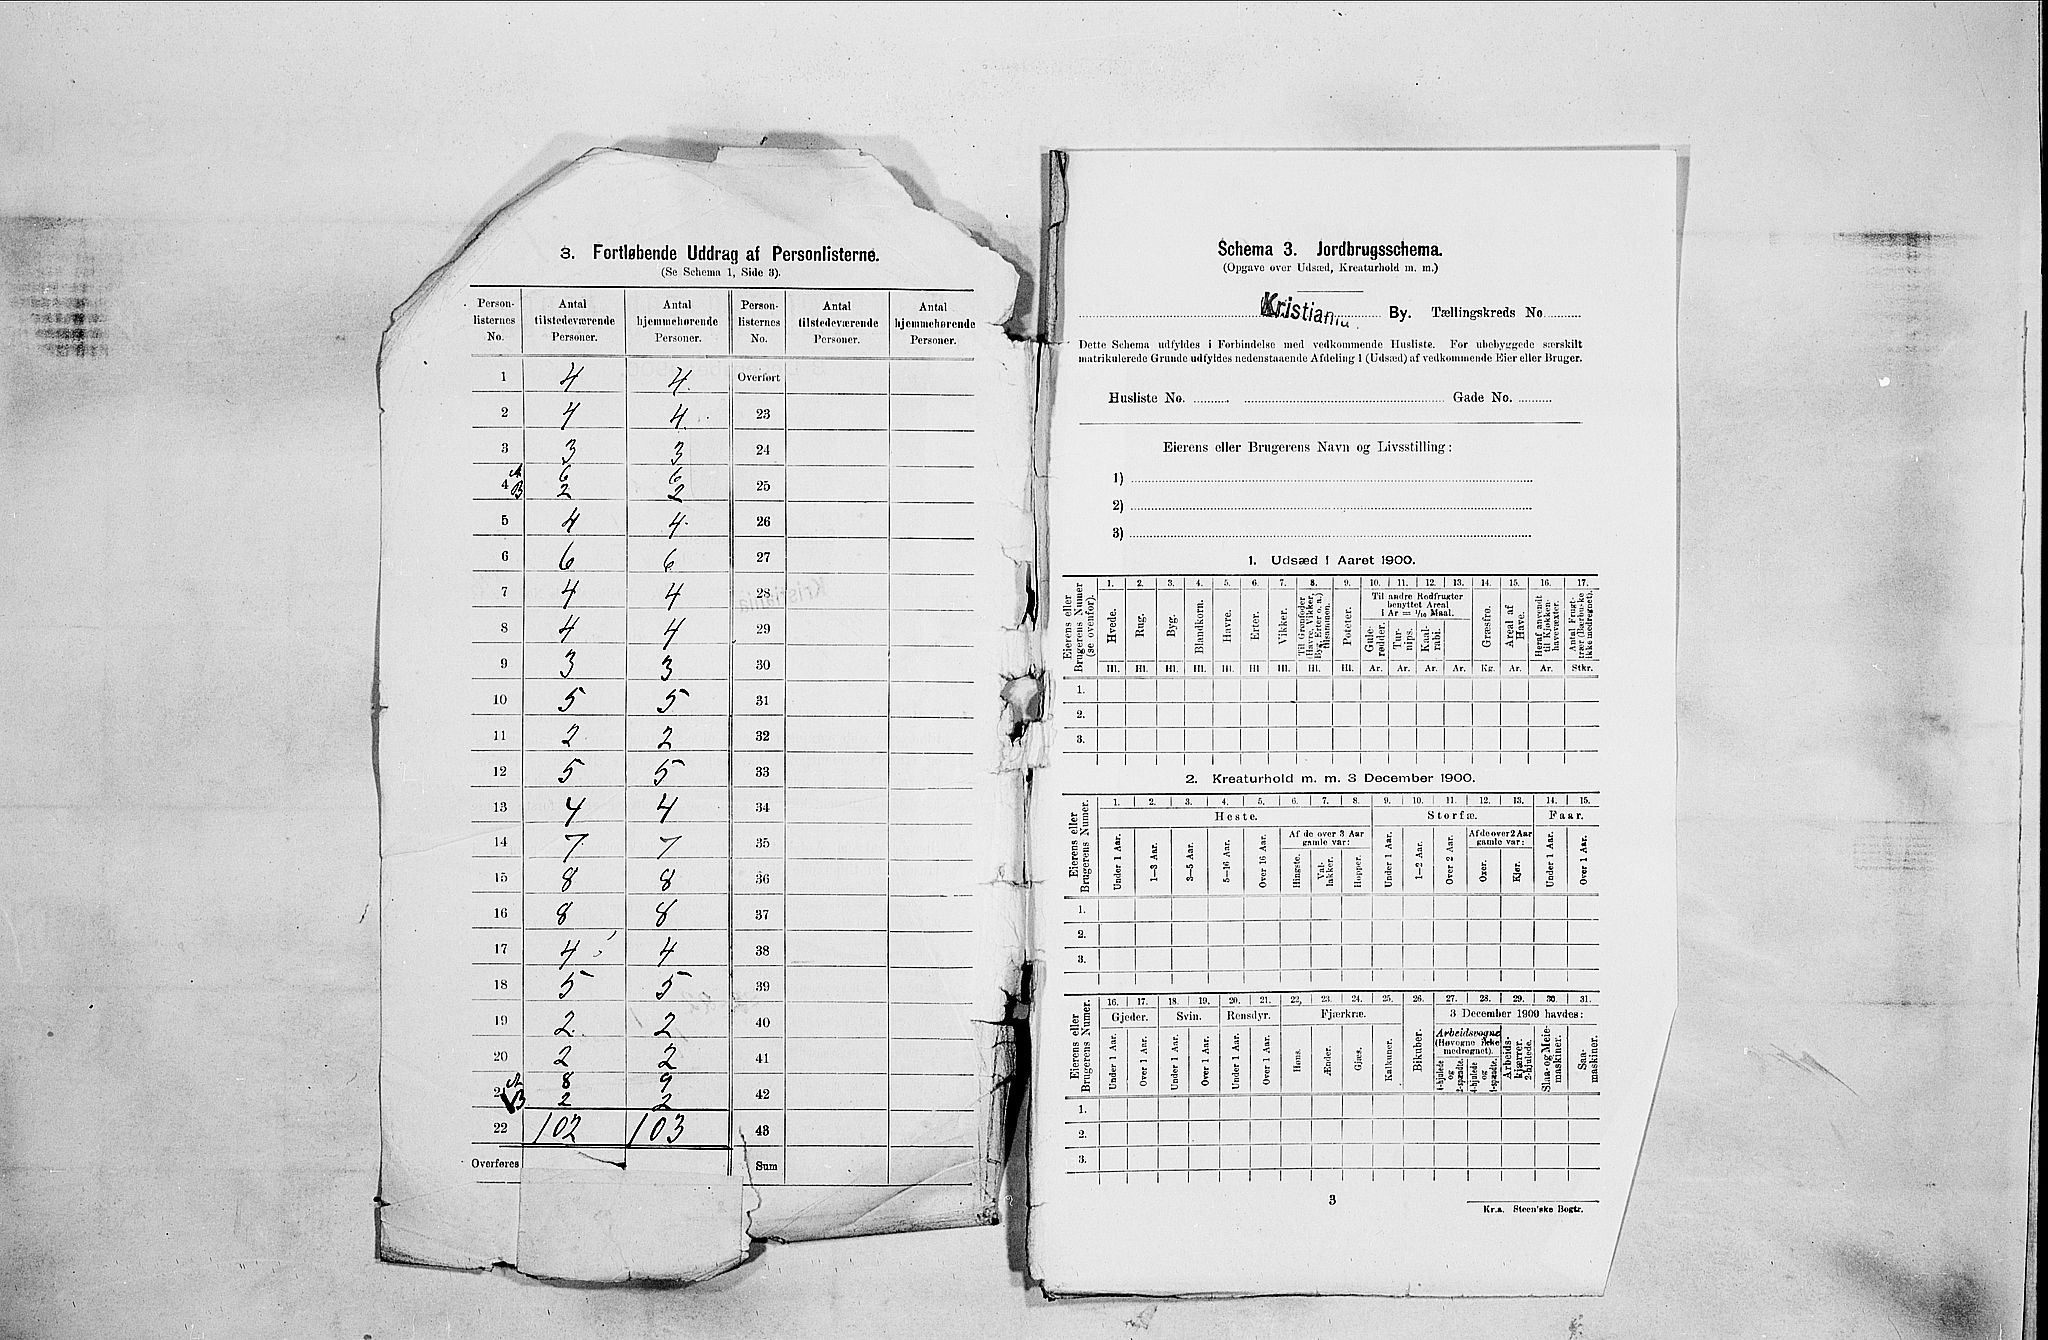 3. Fortløbende Uddrag af Personlisterne.
(Se Schema 1, Side 3).
Person-listernes No. | Antal tilstedeværende Personer. | Antal hjemmehørende Personer. | Person-listernes No. | Antal tilstedeværende Personer. | Antal hjemmehørende Personer.
1 4 4 Overført
2 4 4 23
3 3 3 24
4 A 6 6 25
B 2 2
5 4 4 26
6 6 6 27
7 4 4 28
8 4 4 29
9 3 3 30
10 5 5 31
11 2 2 32
12 5 5 33
13 4 4 34
14 7 7 35
15 8 8 36
16 8 8 37
17 4 4 38
18 5 5 39
19 2 2 40
20 2 2 41
21 A 8 9 42
B 2 2
22 102 103 43
Overføres Sum
Schema 3. Jordbrugsschema.
(Opgave over Udsæd, Kreaturhold m. m.)
Kristiania. By. Tællingskreds No
Dette Schema udfyldes i Forbindelse med vedkommende Husliste. For ubebyggede særskilt
matrikulerede Grunde udfyldes nedenstaaende Afdeling 1 (Udsæd) af vedkommende Eier eller Bruger.
Husliste No. Gade No.
Eierens eller Brugerens Navn og Livsstilling:
1)
2)
3)
1. Udsæd i Aaret 1900.
Eierens eller Brugerens Numer (se ovenfor).
1. 2. 3. 4. 5. 6. 7. 8. 9. 10. 11. 12. 13. 14. 15. 16. 17.
Hvede. Rug. Byg. Blandkorn. Havre. Erter. Vikker. Til Grønfoder (Havre, Vikker, Byg, Erter o. a.) tilsammen. Poteter.
Til andre Rodfrugter benyttet Areal 1 Ar = 1/10 Maal.
Gule-rødder. Tur-nips. Kaal-rabi. Græsfrø. Areal af Have. Heraf anvendt til Kjøkken-havevæxter. Antal Frugt-trær (Bærbuske ikke medregnet).
Hl. Hl. Hl. Hl. Hl. Hl. Hl. Hl. Hl. Ar. Ar. Ar. Ar. Kg. Ar. Ar. Stkr.
1.
2.
3.
2. Kreaturhold m. m. 3 December 1900.
Eierens eller Brugerens Numer.
1. 2. 3. 4. 5. 6. 7. 8. 9. 10. 11. 12. 13. 14. 15.
Heste. Storfæ. Faar.
Under 1 Aar. 1—3 Aar. 3—5 Aar. 5—16 Aar. Over 16 Aar. Af de over 3 Aar gamle var: Hingste. Val-lakker. Hopper.
Under 1 Aar. 1—2 Aar. Over 2 Aar. Af de over 2 Aar gamle var: Oxer. Kjør. Under 1 Aar. Over 1 Aar.
1.
2.
3.
Eierens eller Brugerens Numer.
16. 17. 18. 19. 20. 21. 22. 23. 24. 25. 26. 27. 28. 29. 30. 31.
Gjeder. Svin. Rensdyr. Fjærkræ. Bikuber. 3 December 1900 havdes:
Under 1 Aar. Over 1 Aar. Under 1 Aar. Over 1 Aar. Under 1 Aar. Over 1 Aar. Høns. Ænder. Gjæs. Kalkuner.
Arbeidsvogne (Høvogne ikke medregnet). 4-hjulede og 2-spændte. 4-hjulede og 1-spændte. Arbeids-kjærrer. 2-hjulede. Slaa- og Meie-maskiner. Saa-maskiner.
1.
2.
3.
3
Kr.a. Steen'ske Bogtr.